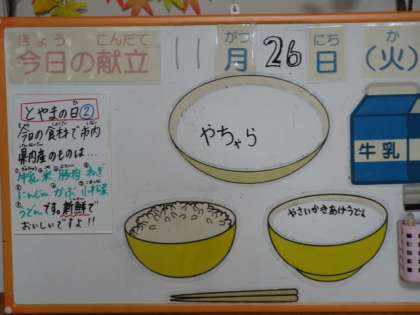 きょう こんだて
今日の献立
11
がつ
月
26
にち
日
か
(火)
とやまの日②
今日の食材で市内
県内産のものは…
牛乳 米 豚肉 ねぎ
にんじん かぶ 小松菜
うどん です。新鮮で
おいしいですよ!!
やちゃら
やさいかきあげうどん
牛乳